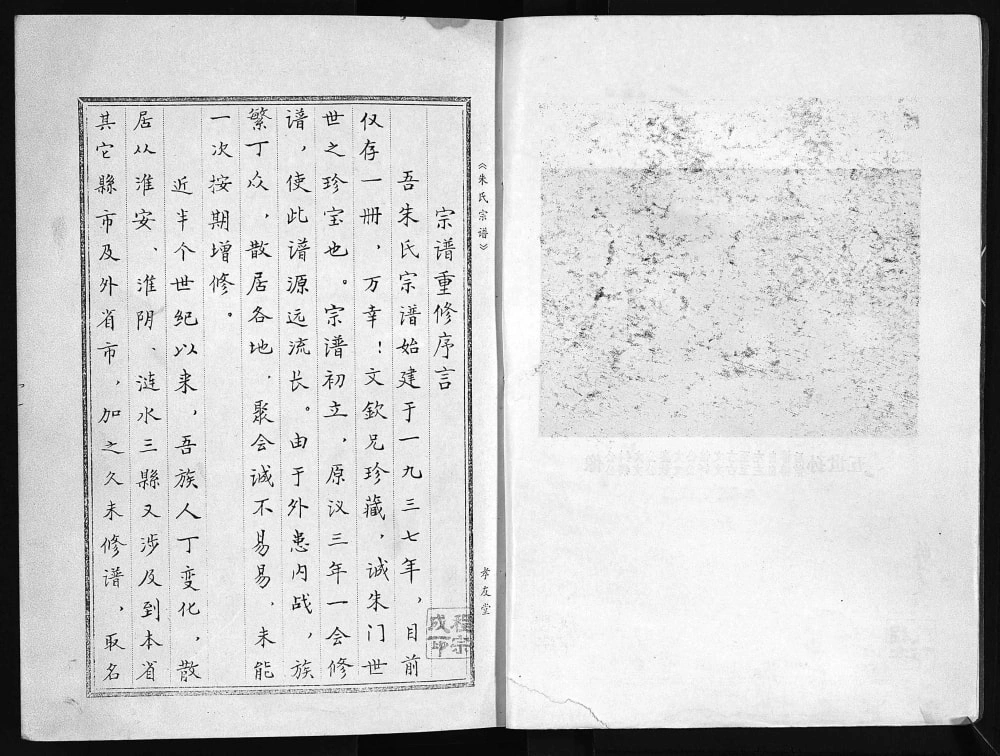 《朱氏宗谱》
孝友堂
宗谱重修序言
吾朱氏宗谱始建于一九三七年，目前
仅存一册，万幸！文钦兄珍藏，诚朱门世
世之珍宝也。宗谱初立，原议三年一会修
谱，使此谱源远流长。由于外患内战，族
繁丁众，散居各地，聚会诚不易易，未能
一次按期增修。
近半个世纪以来，吾族人丁变化，散
居从淮安、淮阴、涟水三縣又涉及到本省
其它縣市及外省市，加之久未修谱，取名
程宗
成印